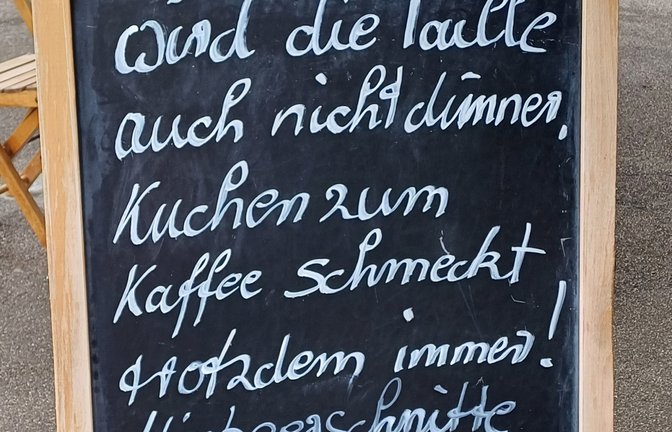 wird die Taille
auch nicht dünner,
Kuchen zum
Kaffee schmeckt
trotzdem immer!